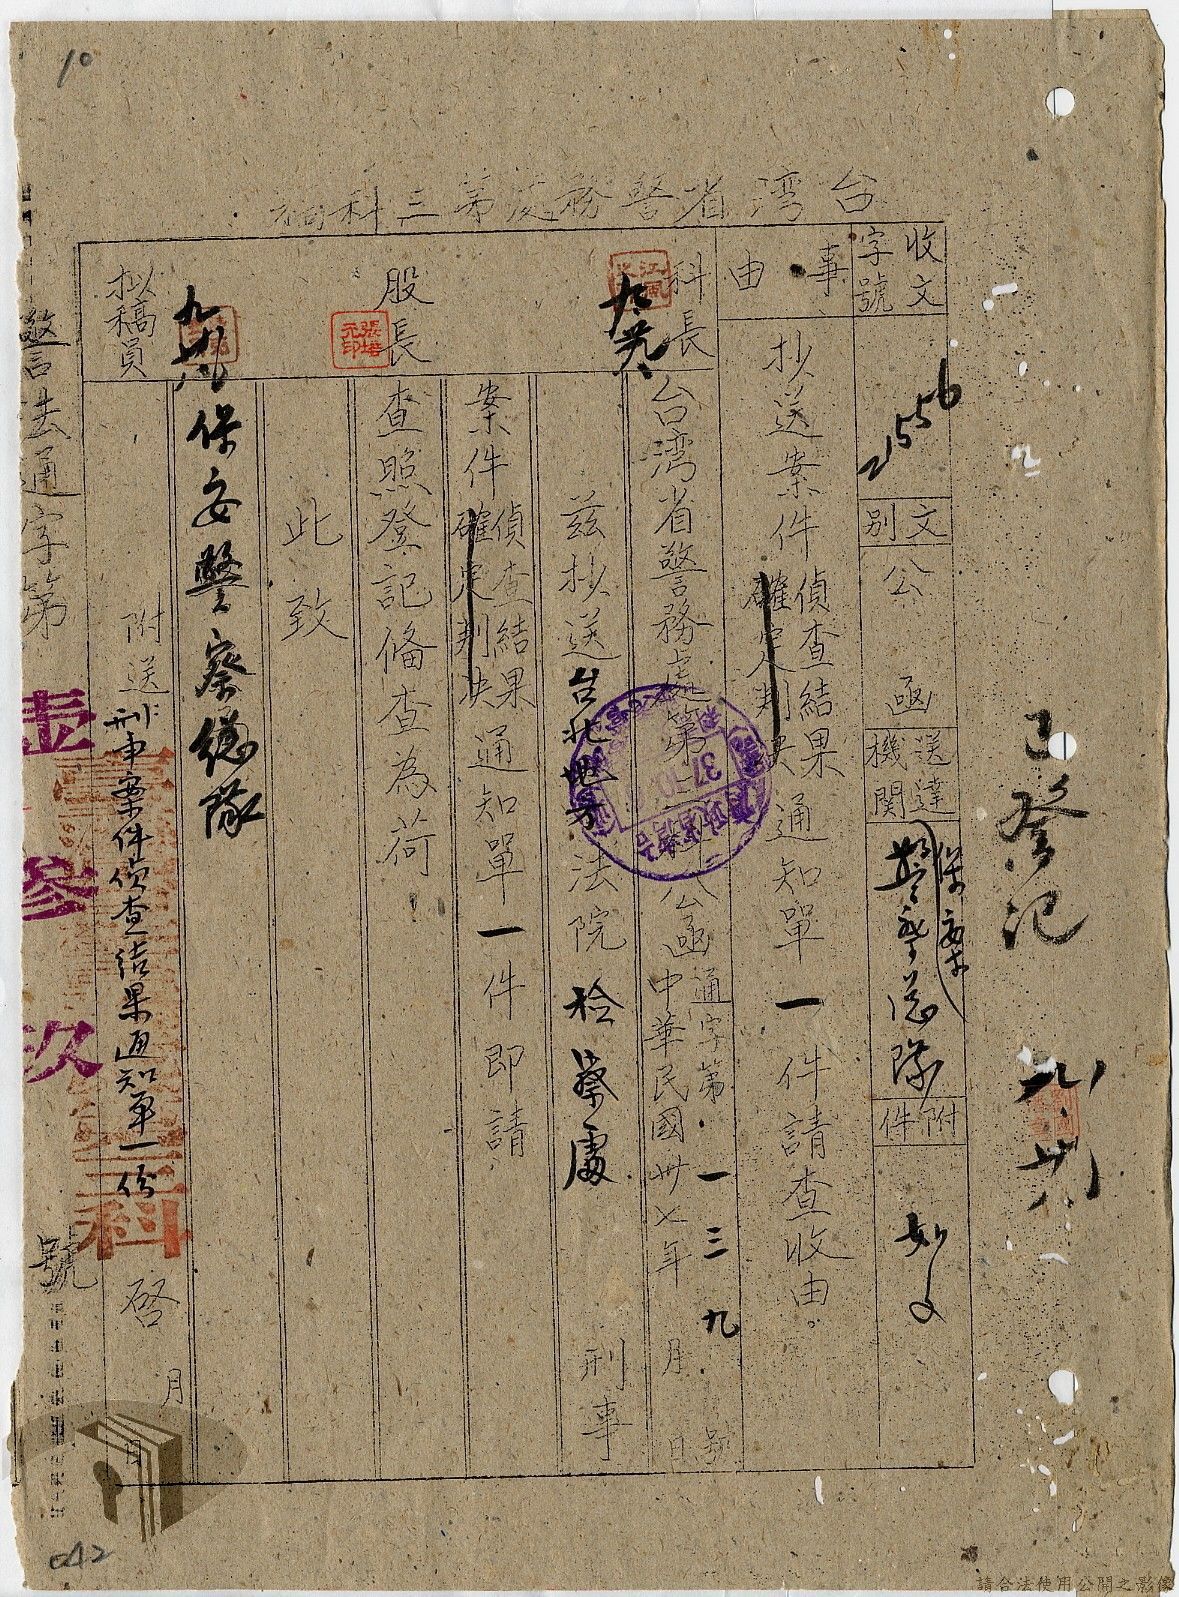 10
台湾省警務處第三科稿
收文字號
21556
文別
公函
送達機関
保安警察总隊
附件
如文
事由
抄送案件偵查結果確定判決通知單一件請查收由。
科長
九 廿八
股長
張培元印
九 廿八
拟稿員
台湾省警務處第三科公函
通字第一三九號
中華民國卅七年 月 日
兹抄送台北地方法院檢察處 刑事
案件偵查結果確定判決通知單一件即請
查照登記俻查為荷
此致
保安警察總隊
附送刑事案件偵查結果通知單一份
啓 月 日
三科
警法通字第 壹參玖 號
已登记
九 廿八
37.10.
042
請合法使用公開之影像